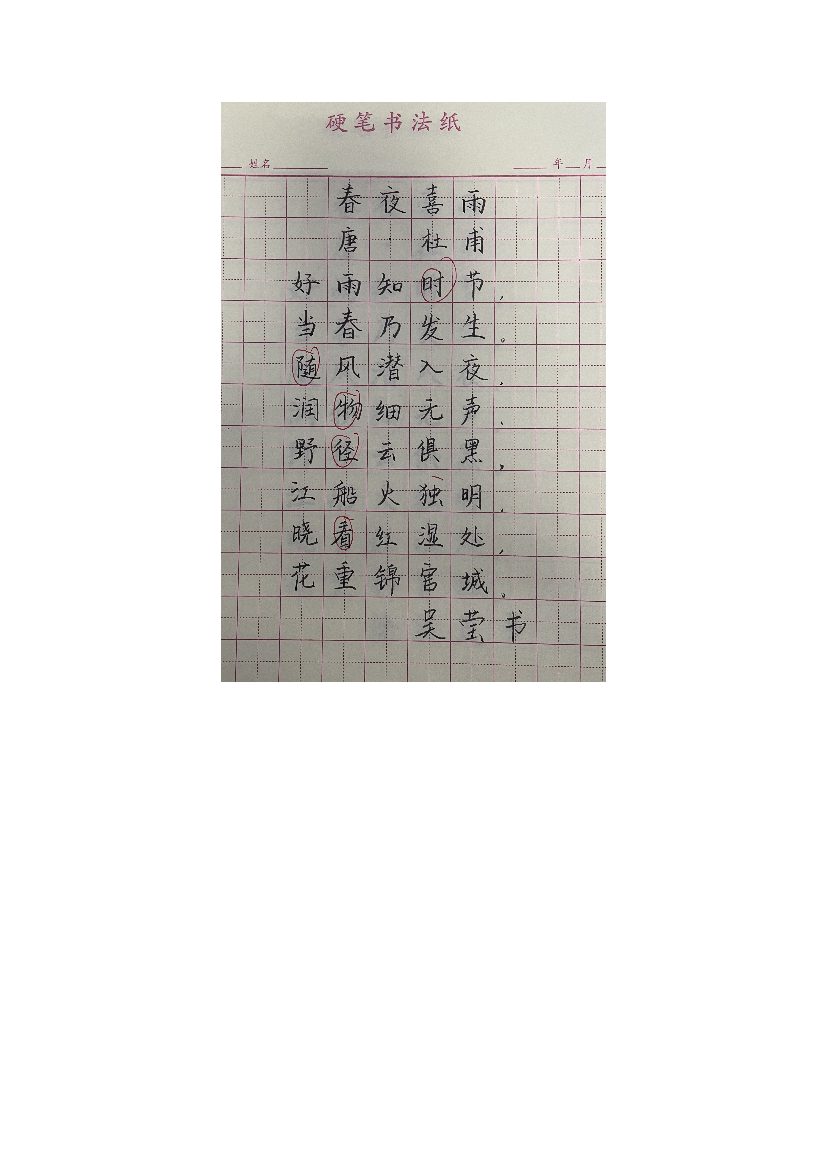 硬笔书法纸
姓名 年 月
春夜喜雨
唐·杜甫
好雨知时节，
当春乃发生。
随风潜入夜，
润物细无声，
野径云俱黑，
江船火独明，
晓看红湿处，
花重锦官城。
吴莹书